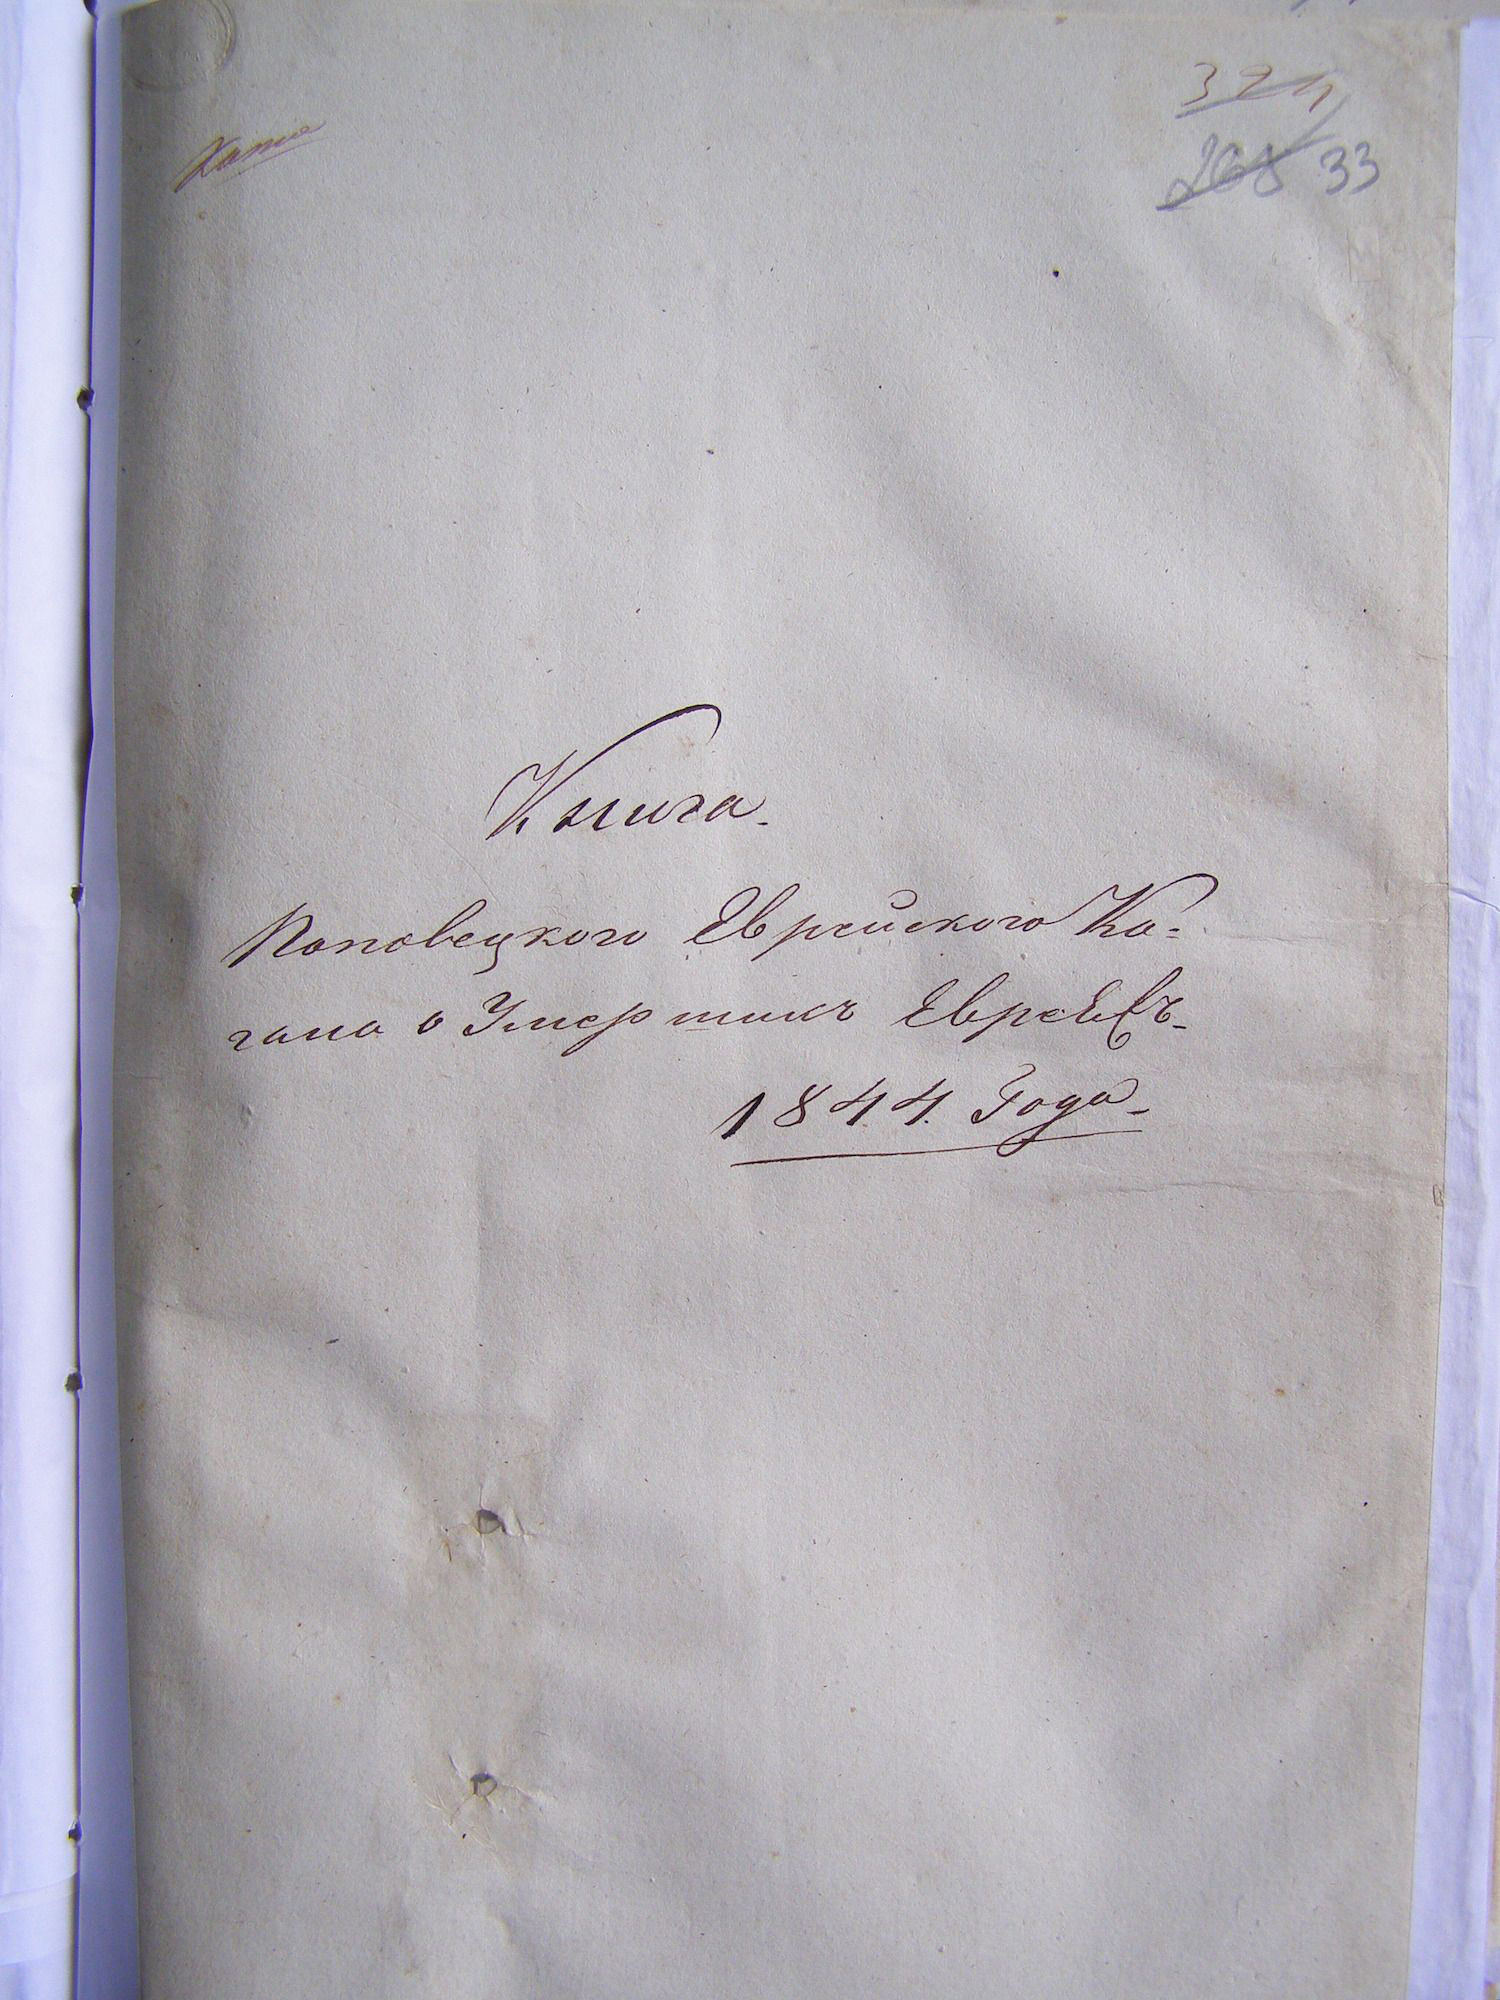 324
268 33
Книга
Паповецкого Еврейского Ка=
гала о Умершихъ Евреевъ
1844. Года